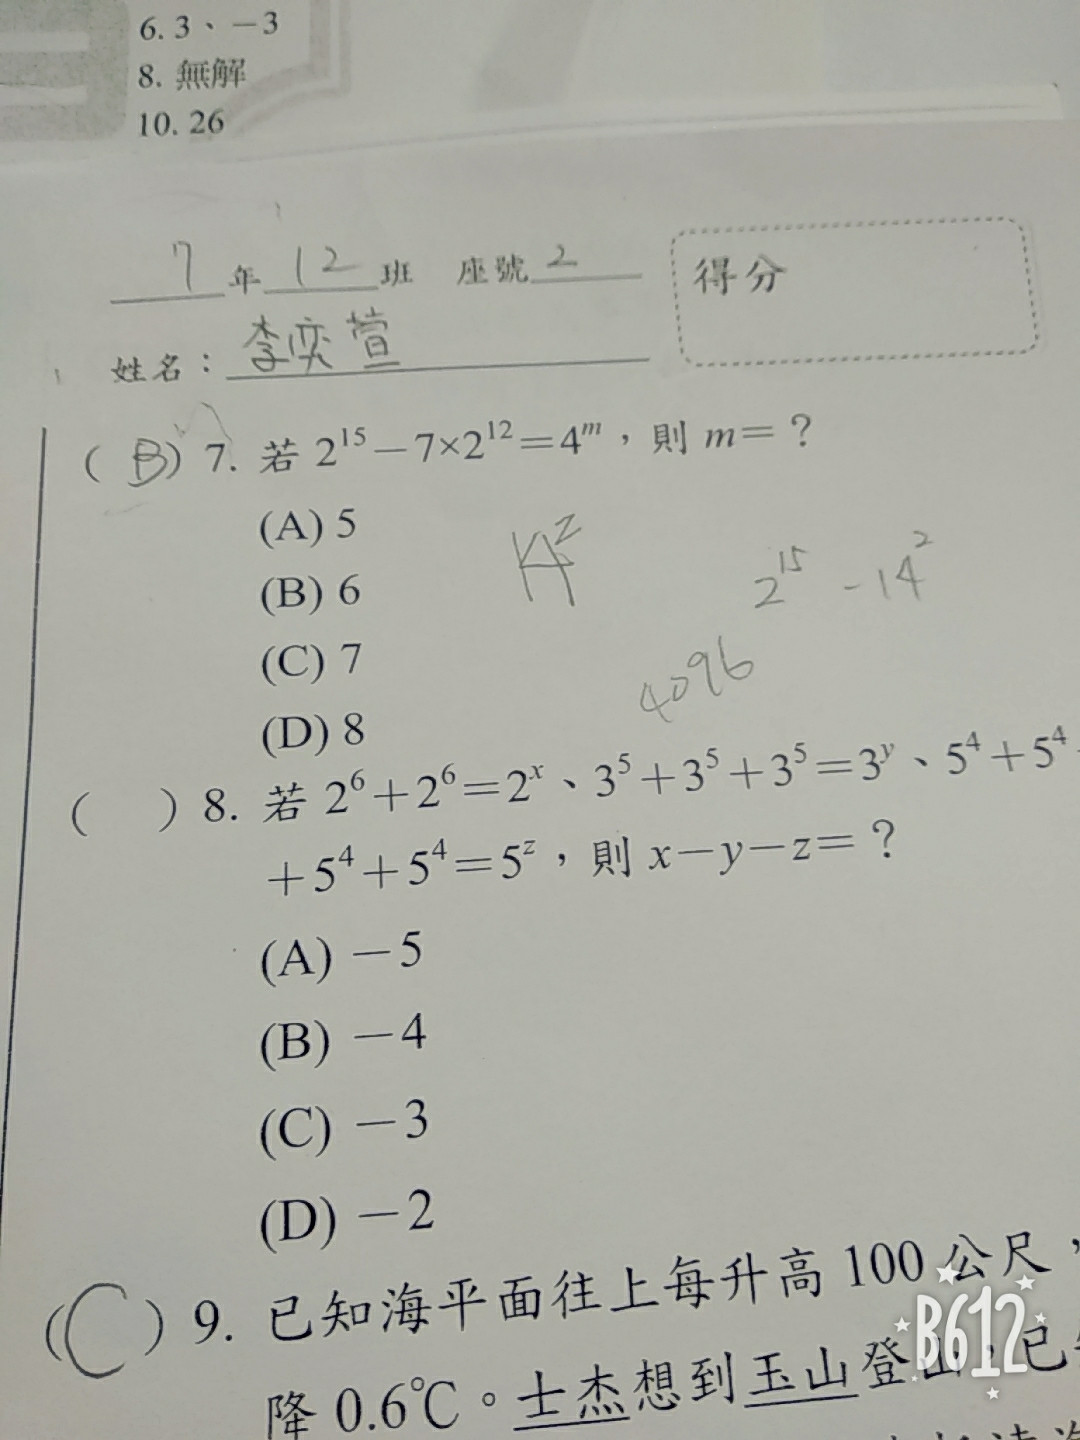 6. 3、－3
8. 無解
10. 26
7年12班 座號2
得分
姓名：李奕萱
(B) 7. 若 2¹⁵－7×2¹²＝4ᵐ，則 m＝？
(A) 5
(B) 6
(C) 7
(D) 8
2¹⁵ - 14²
4096
( ) 8. 若 2⁶＋2⁶＝2ˣ、3⁵＋3⁵＋3⁵＝3ʸ、5⁴＋5⁴
＋5⁴＋5⁴＝5ᶻ，則 x－y－z＝？
(A) －5
(B) －4
(C) －3
(D) －2
(C) 9. 已知海平面往上每升高 100 公尺，
降 0.6℃。士杰想到玉山登山，已
B612